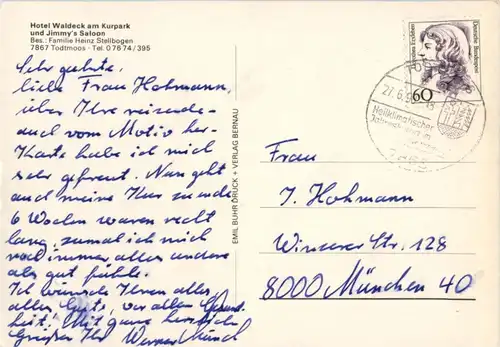 Hotel Waldeck am Kurpark
und Jimmy's Saloon
Bes.: Familie Heinz Stellbogen
7867 Todtmoos · Tel. 0 76 74 / 395
Sehr geehrte,
liebe Frau Hohmann,
über Ihre reizende
auch vom Motiv her-
Karte habe ich mich
sehr gefreut. Nun geht
auch meine Kur zu ende
6 Wochen waren recht
lang, zumal ich mich
noch immer alles andere
als gut fühle.
Ich wünsche Ihnen alles,
alles Gute, vor allem Gesund-
heit! Mit ganz herzlichen
Grüßen Ihr Werner
EMIL BUHR DRUCK + VERLAG BERNAU
Deutsche Bundespost
60
27.6.
Heilklimatischer
Frau
J. Hohmann
Winzerer Str. 128
8000 München 40